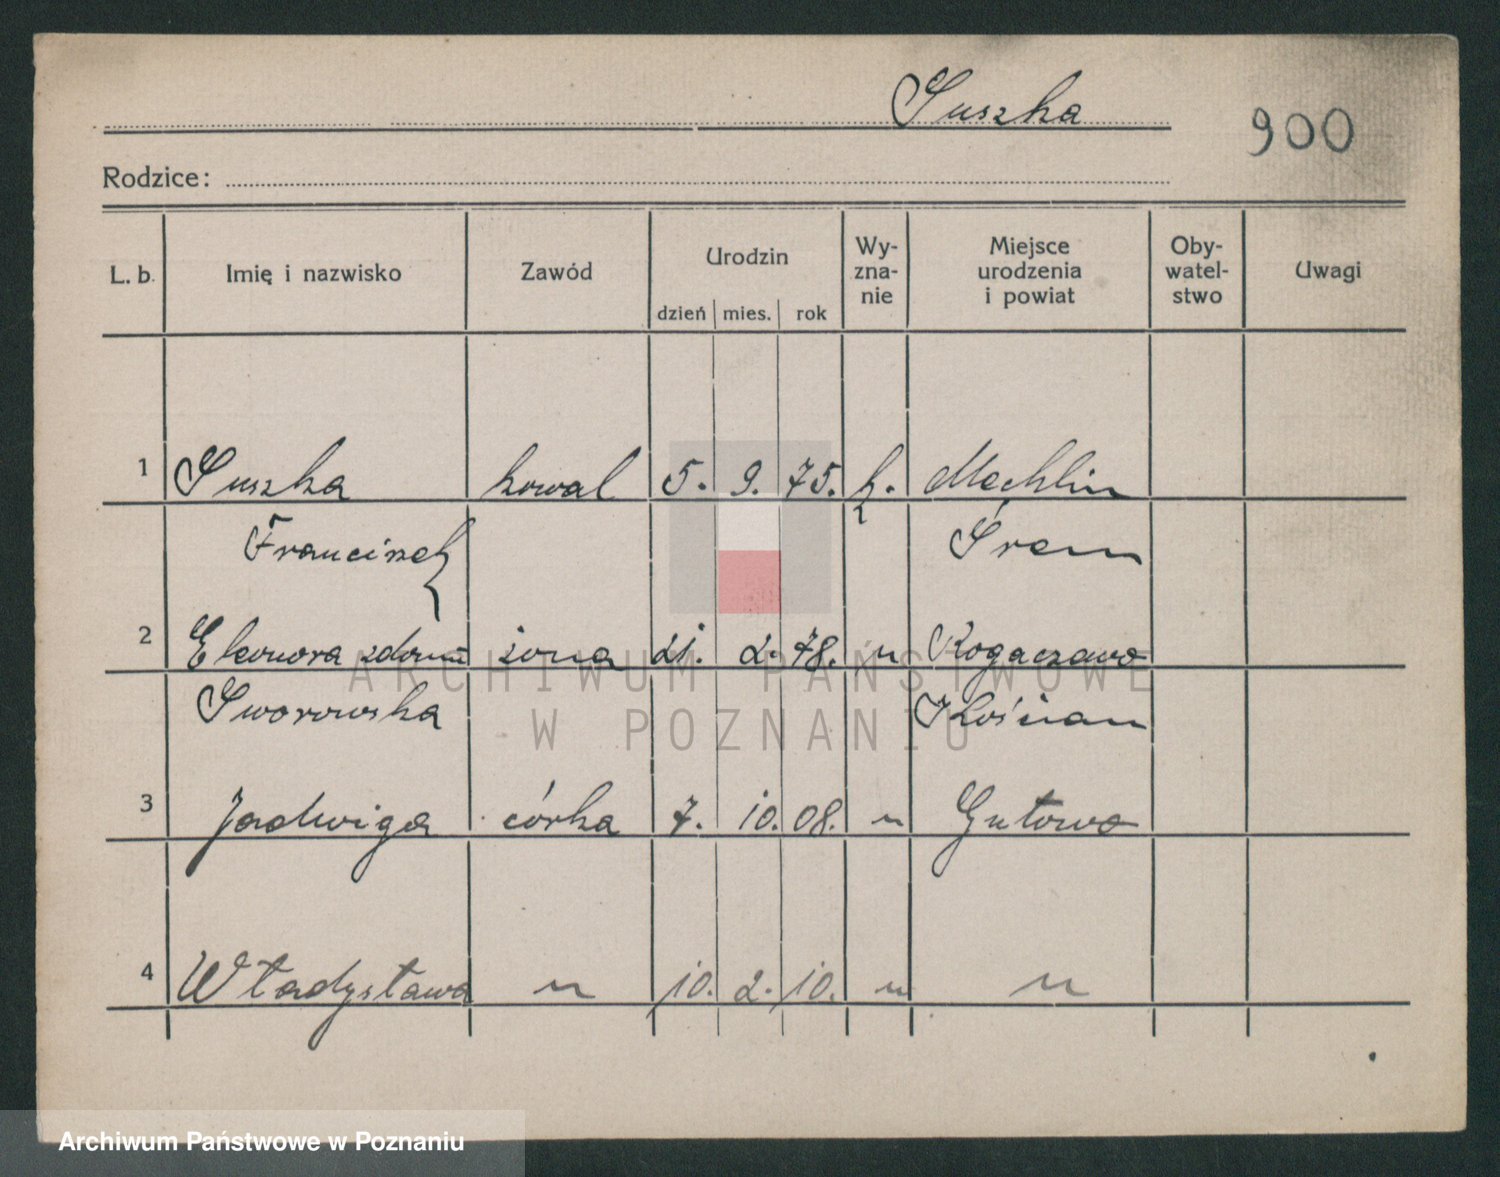 Suszka
900
Rodzice:
L. b. Imię i nazwisko Zawód Urodzin dzień mies. rok Wy-zna-nie Miejsce urodzenia i powiat Oby-watel-stwo Uwagi
1 Suszka kowal 5. 9. 75. k. Mechlin
Franciszek Śrem
2 Eleonora zdomu żona 21. 2. 78. " Rogaczewo
Sworowska Kościan
3 Jadwiga córka 7. 10. 08. " Gutowo
4 Władysława " 10. 2. 10. " "
ARCHIWUM PAŃSTWOWE
W POZNANIU
Archiwum Państwowe w Poznaniu